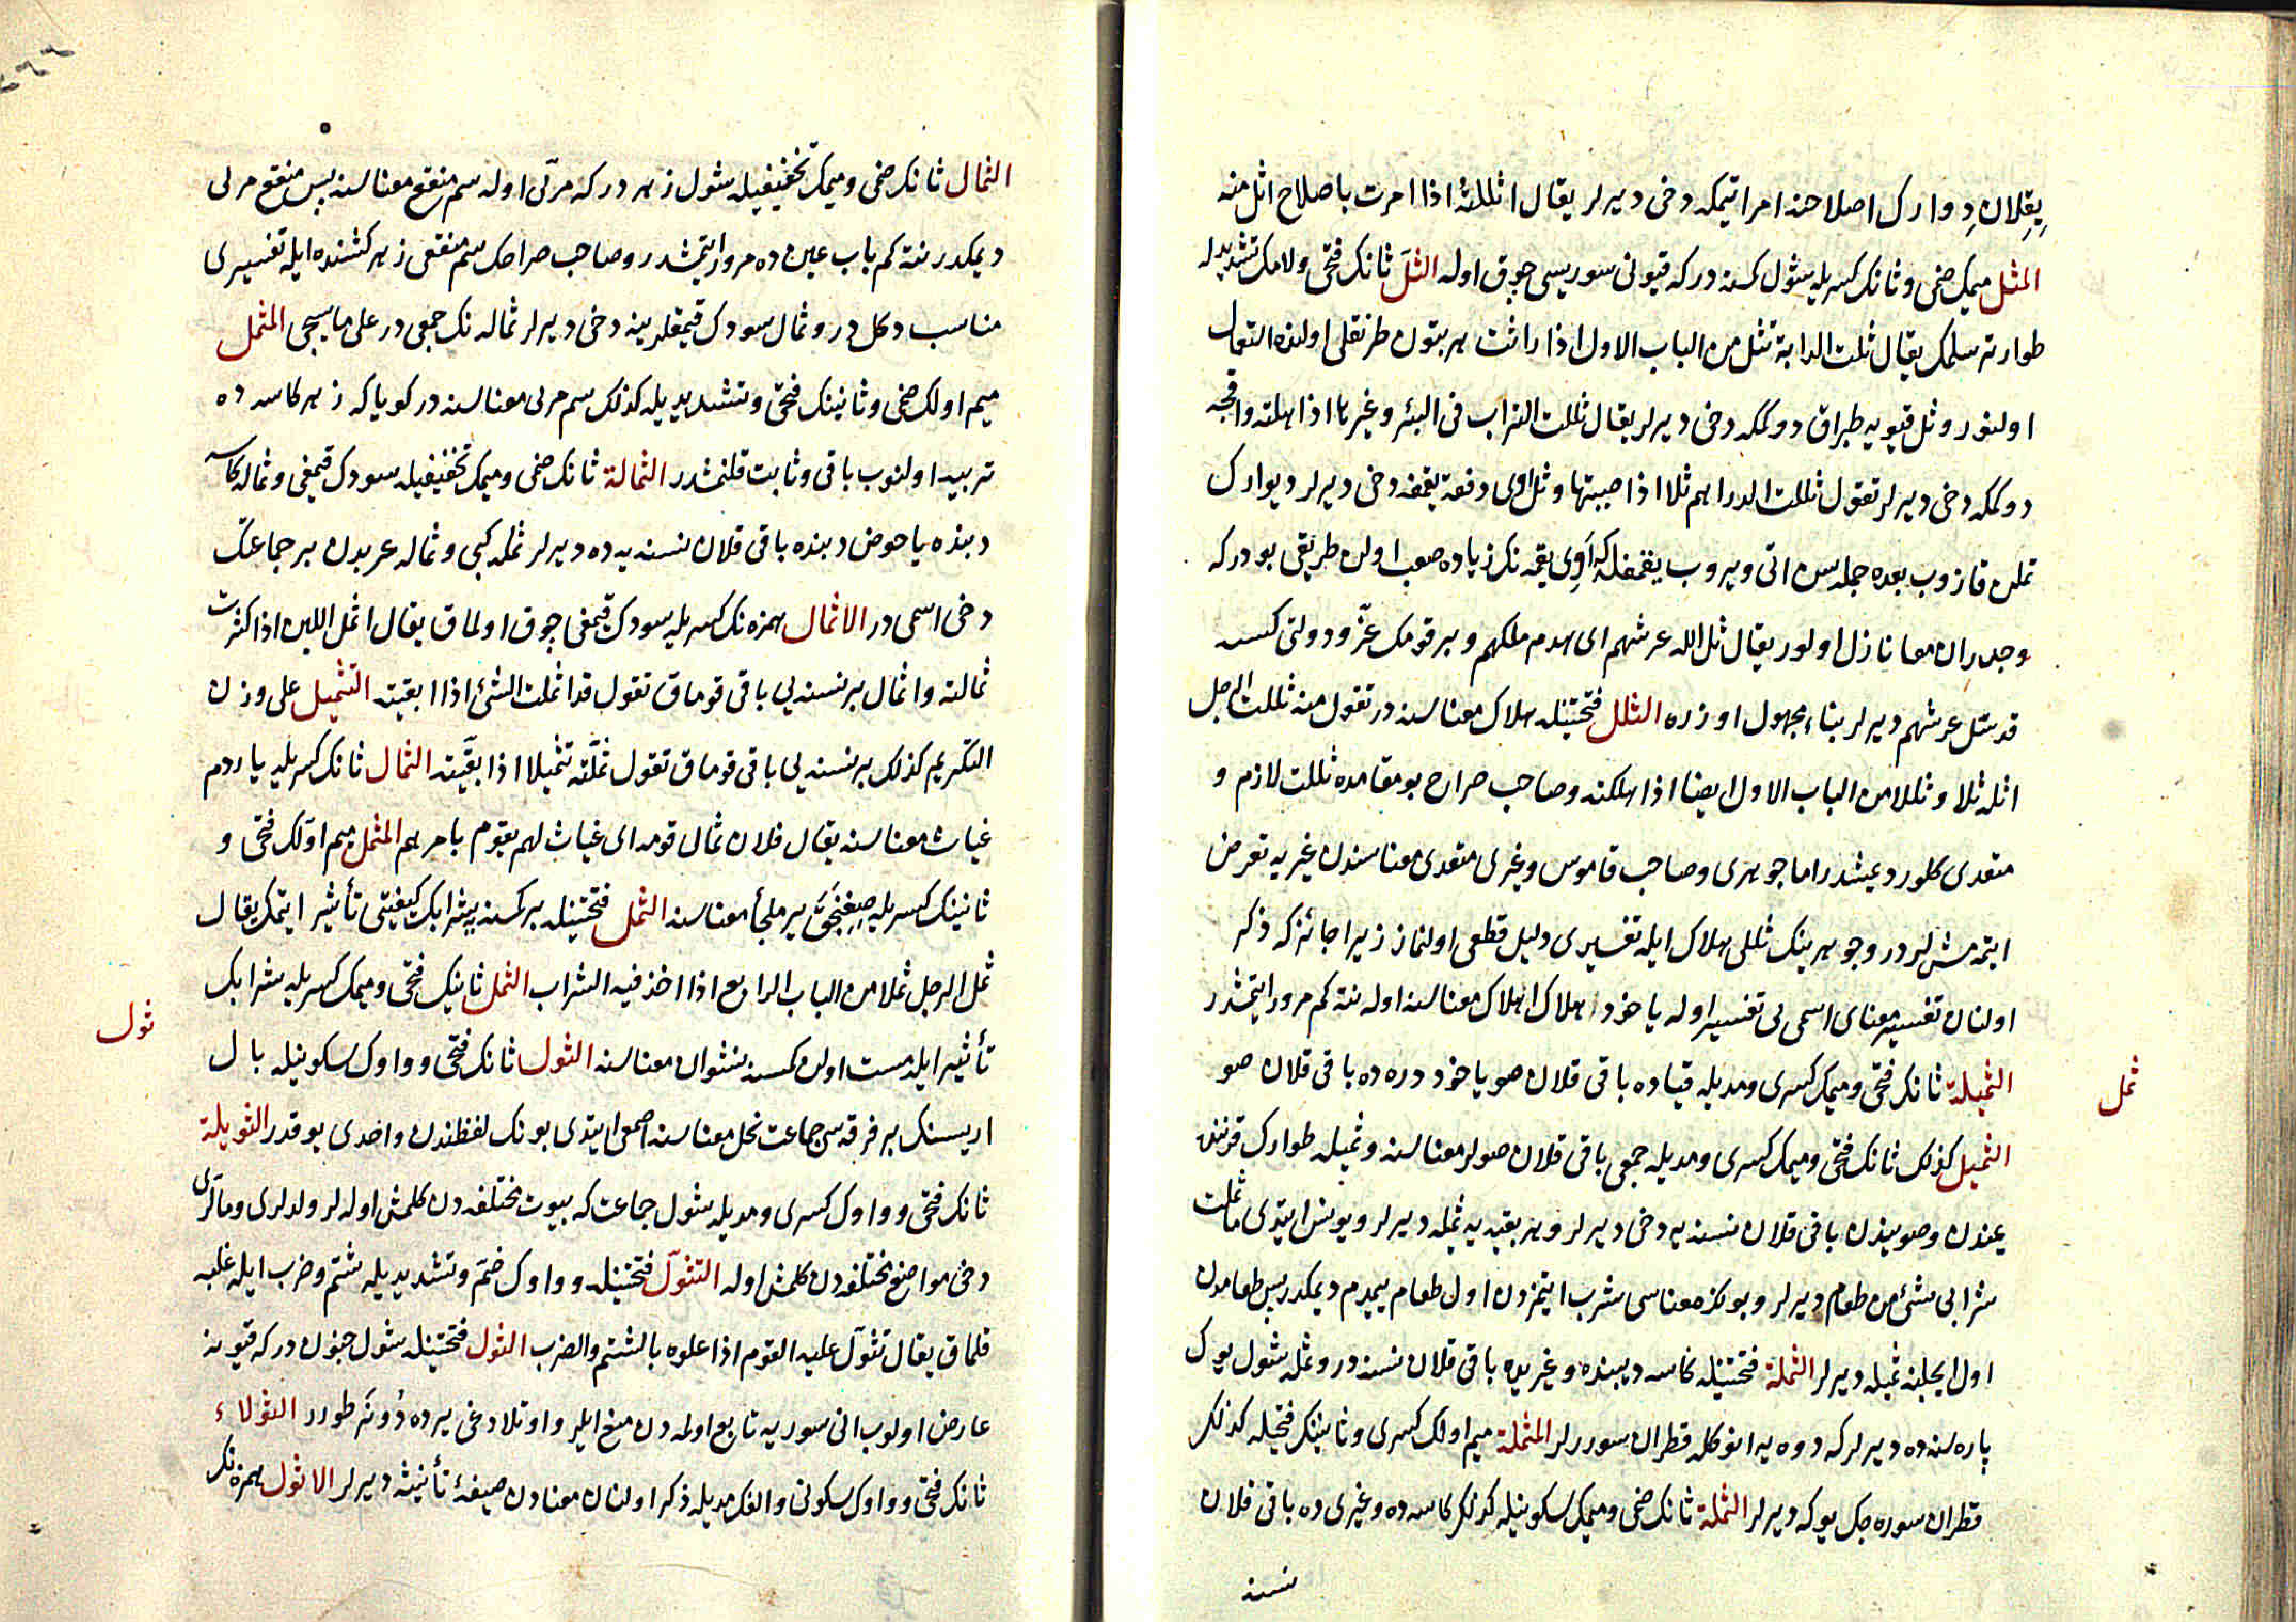 يِقِلان دِوارك اصلاحنه امر ايتمكه دخى ديرلر يقال اثللتهُ اذا امرت باصلاح اثل منه
المثل ميمك ضمى وثانك كسريله شول كمسنه دركه قيونى سوريسى چوق اوله الثلّ ثانك فتحى ولامك تشديديله
طوار ترسلمك يقال ثلت الدابة تثل من الباب الاول اذا راثت هر بتون طرنقلى اولنده استعمال
اولنور وثل قيويه طپراق دوكمكه دخى ديرلر يقال ثللت التراب فى البئر وغيرها اذا هلته واقچه
دوكمكه دخى ديرلر تقول ثللت الدراهم ثلا اذا صببتها وثل اوى دفعة يقمغه دخى ديرلر ديوارك
تملن قازوب بعده جمله سن اتى ويروب يقمغله كه اَوِى يقمه نك زياده صعب اولن طريقى بودركه
وجدران معا نازل اولور يقال ثل الله عرشهم اى هدم ملكهم وبر قومك عزّ ودولتى كسسه
قد ثل عرشهم ديرلر بناء مجهول اوزره الثلل فتحتينله هلاك معناسنه در تقول منه ثللت الرجل
اثله ثلا وثللا من الباب الاول ايضا اذا هلكته وصاحب صراح بومقامده ثللت لازم و
متعدى كلور ديمشدر اما جوهرى وصاحب قاموس وغيرى متعدى معناسندن غيريه تعرض
ايتمه مشلردر وجوهرينك ثللى هلاك ايله تفسيرى دليل قطعى اولنماز زيرا جائز كه ذكر
اولنان تفسير معناى اسمى يى تفسير اوله ياخود هلاك اهلاك معناسنه اوله نته كم مرور ايتمشدر
الثميلة ثانك فتحى وميمك كسرى ومديله قياده باقى قلان صو ياخود دره ده باقى قلان صو
ثمل
الثميل كذلك ثانك فتحى وميمك كسرى ومديله جمعى باقى قلان صولر معناسنه وثميله طوارك قرننده
يمندن وصويندن باقى قلان نسنه يه دخى ديرلر وهر بقيه يه ثميله ديرلر ويونس ايتدى ما ثملت
شرابى بشئ من طعام ديرلر وبوكره معناسى شرب ايتمزدن اول طعام ييمدم ديمكدر پس طعامدن
اول ايچلنه ثميله ديرلر الثملة فتحتينله كاسه ديبنده وغيريده باقى قلان نسنه در وثمله شول يوك
پاره سنده ديرلركه دوه يه انوكله قطران سوررلر المثملة ميم اولك كسرى وثانينك فتحيله كذلك
قطران سوره جك يوكه ديرلر الثملة ثانك ضمى وميمك سكونيله كذلك كاسه ده وغيرى ده باقى قلان
نسنه
الثمال ثانك ضمى وميمك تخفيفيله شول زهر دركه مربّى اوله سم منقع معناسنه پس منقع مربى
ديمكدر نته كم باب عين ده مرور ايتمشدر وصاحب صراحك سم منقعى زهر كشنده ايله تفسيرى
مناسب دكلدر وثمال سودك قيمقلرينه دخى ديرلر ثماله نك جمعى در على ما سيجى المثمل
ميم اولك ضمى وثانينك فتحى وتشديديله كذلك سم مربى معناسنه در كويا كه زهر كاسه ده
تربيه اولنوب باقى وثابت قلنمشدر الثمالة ثانك ضمى وميمك تخفيفيله سودك قيمغى وثماله كاسه
دبنده يا حوض دبنده باقى قلان نسنه يه ده ديرلر ثمله كبى وثماله عربدن بر جماعتك
دخى اسمى در الاثمال همزه نك كسريله سودك قيمغى چوق اولماق يقال اثمل اللبن اذا كثرت
ثمالته واثمال بر نسنه يى باقى قوماق تقول قد اثملت الشئ اذا ابقيته التثميل على وزن
التكريم كذلك بر نسنه يى باقى قوماق تقول ثمّلته تثميلا اذا بقّيته الثمال ثانك كسريله ياردم
غياث معناسنه يقال فلان ثمال قومه اى غياث لهم يقوم بامرهم المثمل ميم اولك فتحى و
ثانينك كسريله صِغِنجَق ير ملجأ معناسنه الثمل فتحتينله بر كمسنه يه شرابك كيفيتى تأثير ايتمك يقال
ثمل الرجل ثملا من الباب الرابع اذا اخذ فيه الشراب الثمل ثانيك فتحى وميمك كسريله شرابك
تأثير ايله مست اولن كمسنه نشوان معناسنه الثول ثانك فتحى وواوك سكونيله بال
ثول
اريسنك بر فرقه سى جماعت نحل معناسنه اصمعى ايتدى بونك لفظندن واحدى يوقدر الثويلة
ثانك فتحى وواوك كسرى ومديله شول جماعت كه بيوت مختلفه دن كلمش اوله لر ولدلرى وماللرى
دخى مواضع مختلفه دن كلمش اوله التثوّل فتحتينله وواوك ضمّ وتشديديله شتم وضرب ايله غلبه
قلماق يقال تثوّل عليه القوم اذا علوه بالشتم والضرب الثول فتحتينله شول جنون دركه قيونه
عارض اولوب انى سوريه تابع اولمه دن منع ايلر واوتلادغى يرده دُونَر طورر الثولاء
ثانك فتحى وواوك سكونى والفك مديله ذكر اولنان معنادن صيغهٔ تأنيثه ديرلر الاثول همزه نك